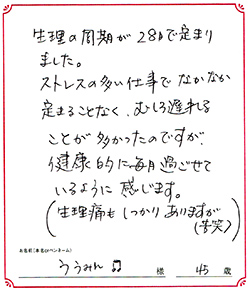 生理の周期が28日で定まり
ました。
ストレスの多い仕事でなかなか
定まることなく、むしろ遅れる
ことが多かったのですが、
健康的に毎月過ごせて
いるように感じます。
(生理痛もしっかりありますが
(苦笑))
お名前(本名orペンネーム)
ううみん♫ 様 45 歳